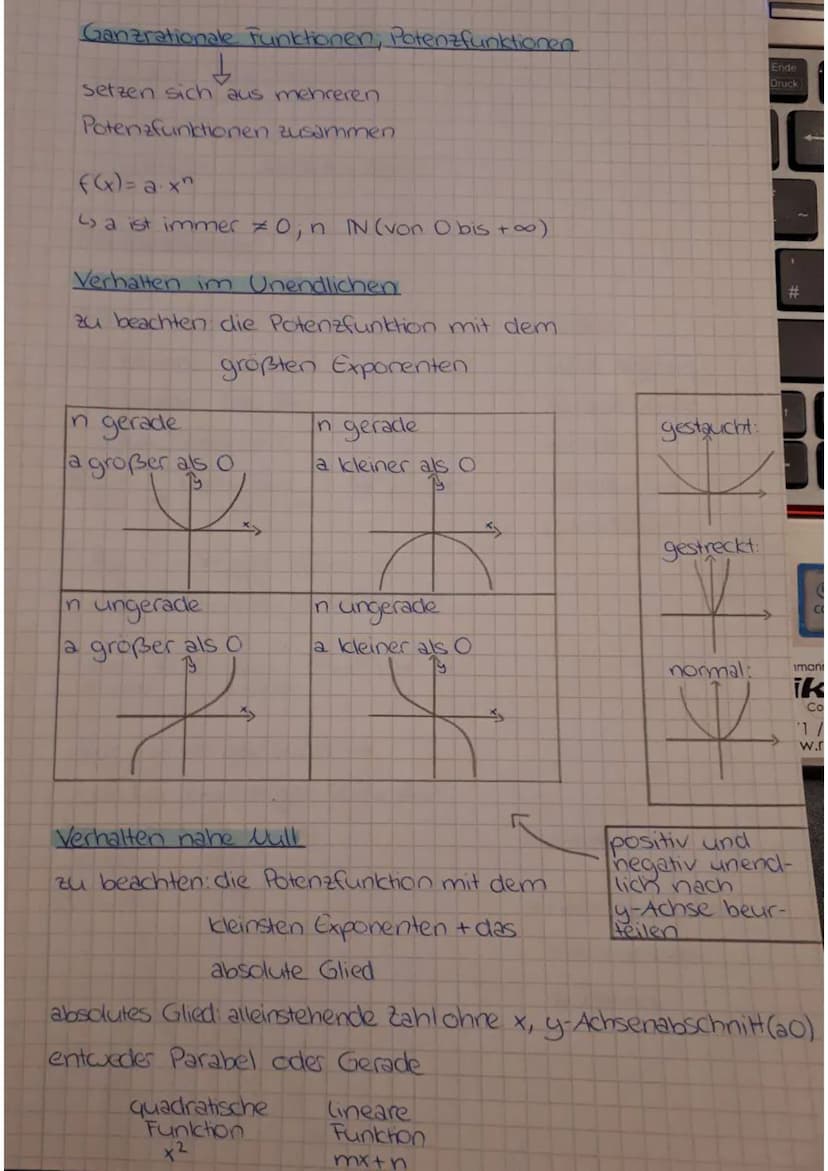 Ganzrationale Funktionen, Potenzfunktionen
setzen sich aus mehreren
Potenzfunktionen zusammen
f(x)= a·xⁿ
↳ a ist immer ≠ 0, n IN (von 0 bis +∞)
Verhalten im Unendlichen
zu beachten: die Potenzfunktion mit dem
größten Exponenten
n gerade
a großer als 0
y
x
n gerade
a kleiner als 0
y
x
n ungerade
a großer als 0
y
x
n ungerade
a kleiner als 0
y
x
gestaucht:
gestreckt:
normal:
positiv und
negativ unend-
lich nach
y-Achse beur-
teilen
Verhalten nahe Null
zu beachten: die Potenzfunktion mit dem
kleinsten Exponenten + das
absolute Glied
absolutes Glied: alleinstehende Zahl ohne x, y-Achsenabschnitt (a0)
entweder Parabel oder Gerade
quadratische
Funktion
x²
lineare
Funktion
mx+n
Ende
Druck
#